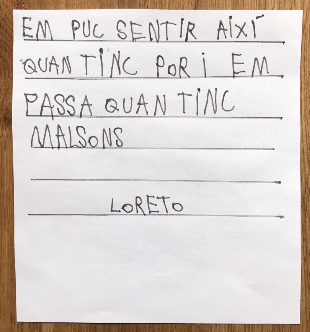 EM PUC SENTIR AIXÍ
QUAN TINC POR I EM
PASSA QUAN TINC
MALSONS
LORETO